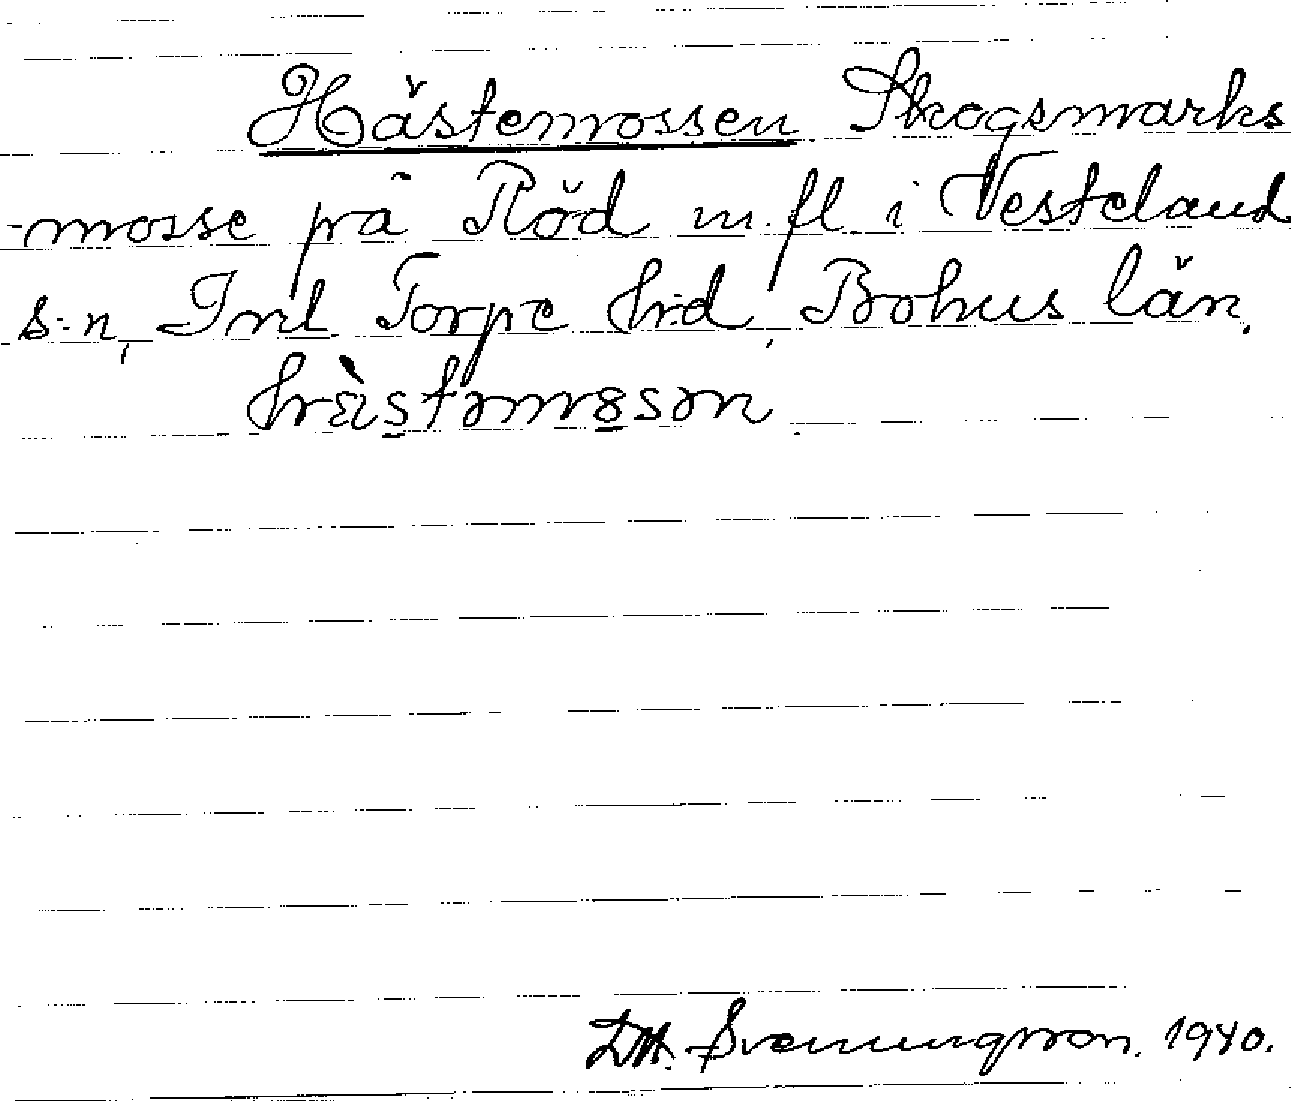 Hästemossen Skogsmarks
-mosse på Röd m.fl i Vesteland
s:n, Inl Torpe hrd, Bohus län.
hràstəmɷsən
D.H. Svenungsson. 1940.